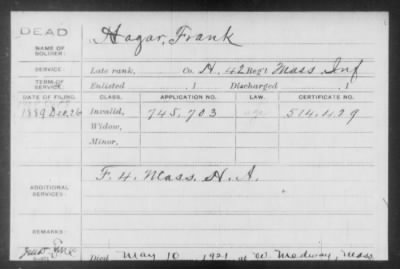 DEAD
NAME OF SOLDIER:
Hagar, Frank
SERVICE:
Late rank, Co. H, 42 Reg't Mass Inf
TERM OF SERVICE:
Enlisted , 1 Discharged , 1
DATE OF FILING. CLASS. APPLICATION NO. LAW. CERTIFICATE NO.
1889 Dec. 26 Invalid, 745,703 514,429
Widow,
Minor,
ADDITIONAL SERVICES:
F. 4. Mass. H. A.
REMARKS:
Died May 10, 1921 at W. Medway, Mass